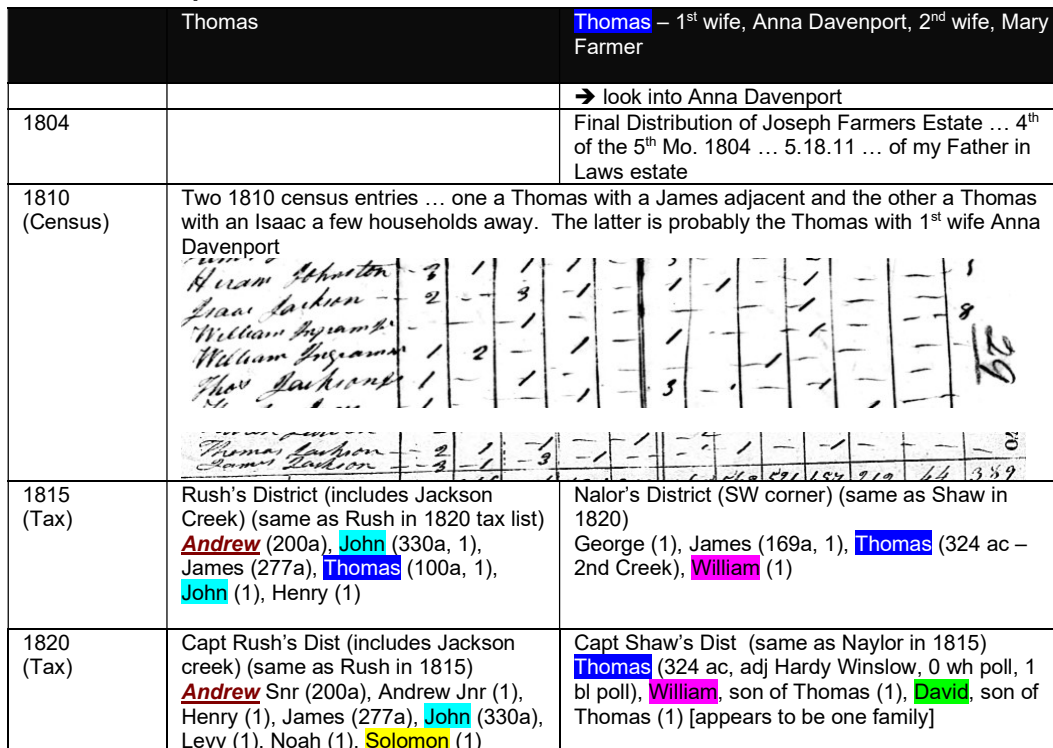 Thomas
Thomas – 1st wife, Anna Davenport, 2nd wife, Mary
Farmer
➔ look into Anna Davenport
1804
Final Distribution of Joseph Farmers Estate … 4th
of the 5th Mo. 1804 … 5.18.11 … of my Father in
Laws estate
1810
(Census)
Two 1810 census entries … one a Thomas with a James adjacent and the other a Thomas
with an Isaac a few households away. The latter is probably the Thomas with 1st wife Anna
Davenport
Hiram Johnston
Isaac Jackson
William Ingram
William Ingram
Thos Jackson
29
Thomas Jackson
James Jackson
1815
(Tax)
Rush's District (includes Jackson
Creek) (same as Rush in 1820 tax list)
Andrew (200a), John (330a, 1),
James (277a), Thomas (100a, 1),
John (1), Henry (1)
Nalor's District (SW corner) (same as Shaw in
1820)
George (1), James (169a, 1), Thomas (324 ac –
2nd Creek), William (1)
1820
(Tax)
Capt Rush's Dist (includes Jackson
creek) (same as Rush in 1815)
Andrew Snr (200a), Andrew Jnr (1),
Henry (1), James (277a), John (330a),
Levy (1), Noah (1), Solomon (1)
Capt Shaw's Dist (same as Naylor in 1815)
Thomas (324 ac, adj Hardy Winslow, 0 wh poll, 1
bl poll), William, son of Thomas (1), David, son of
Thomas (1) [appears to be one family]